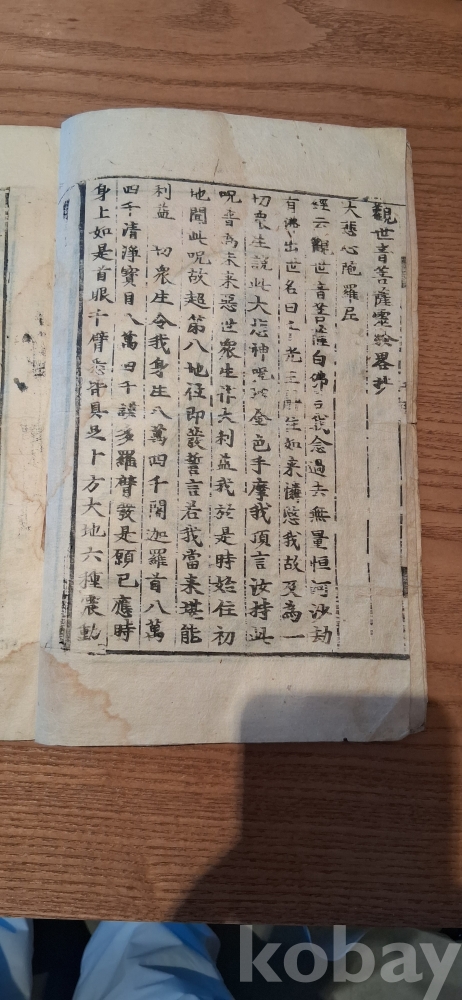 觀世音菩薩靈驗畧抄
大悲心陁羅尼
經云觀世音菩薩白佛言我念過去無量恒河沙劫
有佛出世名曰千光王靜住如来憐愍我故及為一
切衆生說此大悲神呪以金色手摩我頂言汝持此
呪普為未来惡世衆生作大利益我於是時始住初
地聞此呪故超第八地往即發誓言若我當来堪能
利益 切衆生令我身生八萬四千閒迦羅首八萬
四千清淨寳目八萬四千護多羅臂發是願已應時
身上如是首眼千臂悉皆具足十方大地六種震動
kobay